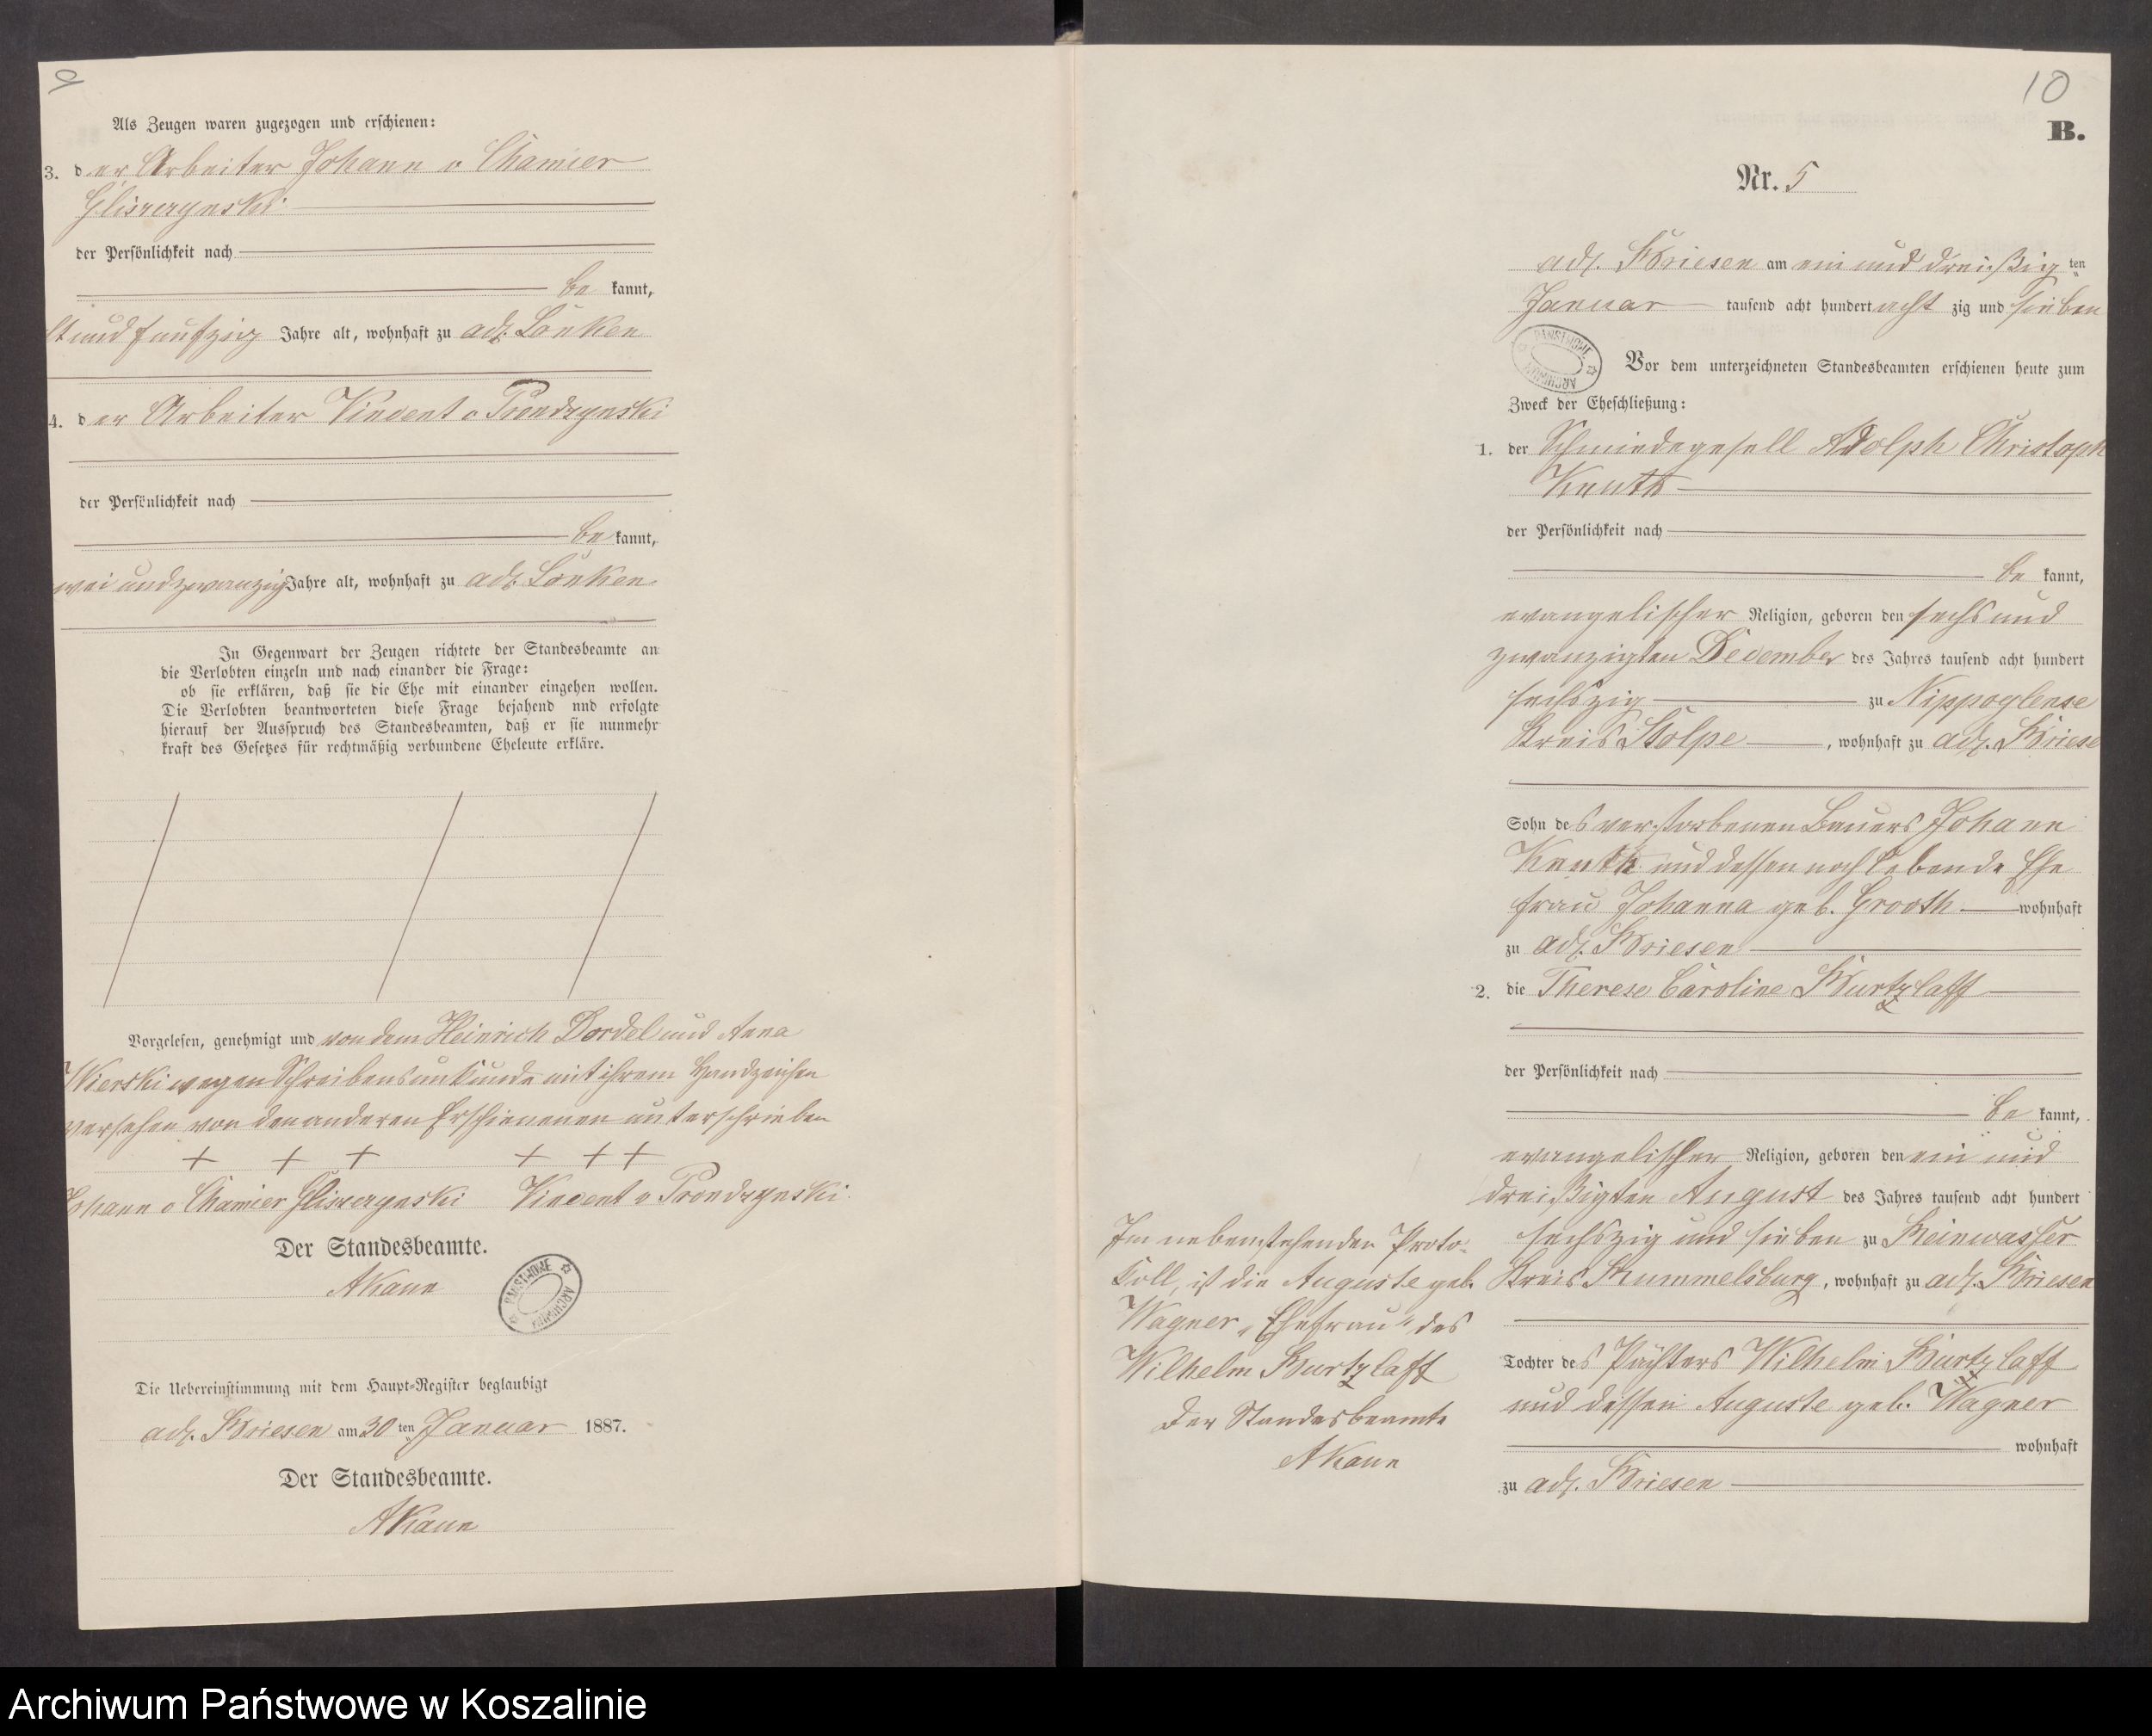 9
Als Zeugen waren zugezogen und erschienen:
3. der Arbeiter Johann v Chamier
Gliszczynski
der Persönlichkeit nach
be kannt,
und funfzig Jahre alt, wohnhaft zu adl. Lonken
4. der Arbeiter Vincent v Prondzynski
der Persönlichkeit nach
be kannt,
zwei und zwanzig Jahre alt, wohnhaft zu adl. Lonken
In Gegenwart der Zeugen richtete der Standesbeamte an
die Verlobten einzeln und nach einander die Frage:
ob sie erklären, daß sie die Ehe mit einander eingehen wollen.
Die Verlobten beantworteten diese Frage bejahend und erfolgte
hierauf der Ausspruch des Standesbeamten, daß er sie nunmehr
kraft des Gesetzes für rechtmäßig verbundene Eheleute erkläre.
Vorgelesen, genehmigt und von dem Heinrich Dordel und Anna
Wierski wegen Schreibensunkunde mit ihrem Handzeichen
versehen von den anderen Erschienenen unterschrieben
+ + + + + +
Johann v Chamier Gliszczynski Vincent v Prondzynski
Der Standesbeamte.
AKann
PAŃSTWOWE ARCHIWUM
Die Uebereinstimmung mit dem Haupt-Register beglaubigt
adl. Briesen am 30 ten Januar 1887.
Der Standesbeamte.
AKann
10
B.
Nr. 5
adl. Briesen am ein und dreißig ten
Januar tausend acht hundert acht zig und sieben
PAŃSTWOWE ARCHIWUM
Vor dem unterzeichneten Standesbeamten erschienen heute zum
Zweck der Eheschließung:
1. der Schmiedegesell Adolph Christoph
Knuth
der Persönlichkeit nach
be kannt,
evangelischer Religion, geboren den sechs und
zwanzigten December des Jahres tausend acht hundert
sechszig zu Nippoglense
Kreis Stolpe, wohnhaft zu adl. Briesen
Sohn des verstorbenen Bauers Johann
Knuth und dessen noch lebende Ehe
frau Johanna geb. Grooth wohnhaft
zu adl. Briesen
2. die Therese Caroline Kurtzlaff
der Persönlichkeit nach
be kannt,
evangelischer Religion, geboren den ein und
dreißigten August des Jahres tausend acht hundert
sechszig und sieben zu Reinwasser
Kreis Rummelsburg, wohnhaft zu adl. Briesen
Tochter des Pächters Wilhelm Kurtzlaff
und dessen Auguste geb. Wagner
wohnhaft
zu adl. Briesen
Im nebenstehenden Proto-
koll, ist die Auguste geb.
Wagner „Ehefrau" des
Wilhelm Kurtzlaff
Der Standesbeamte
AKann
Archiwum Państwowe w Koszalinie